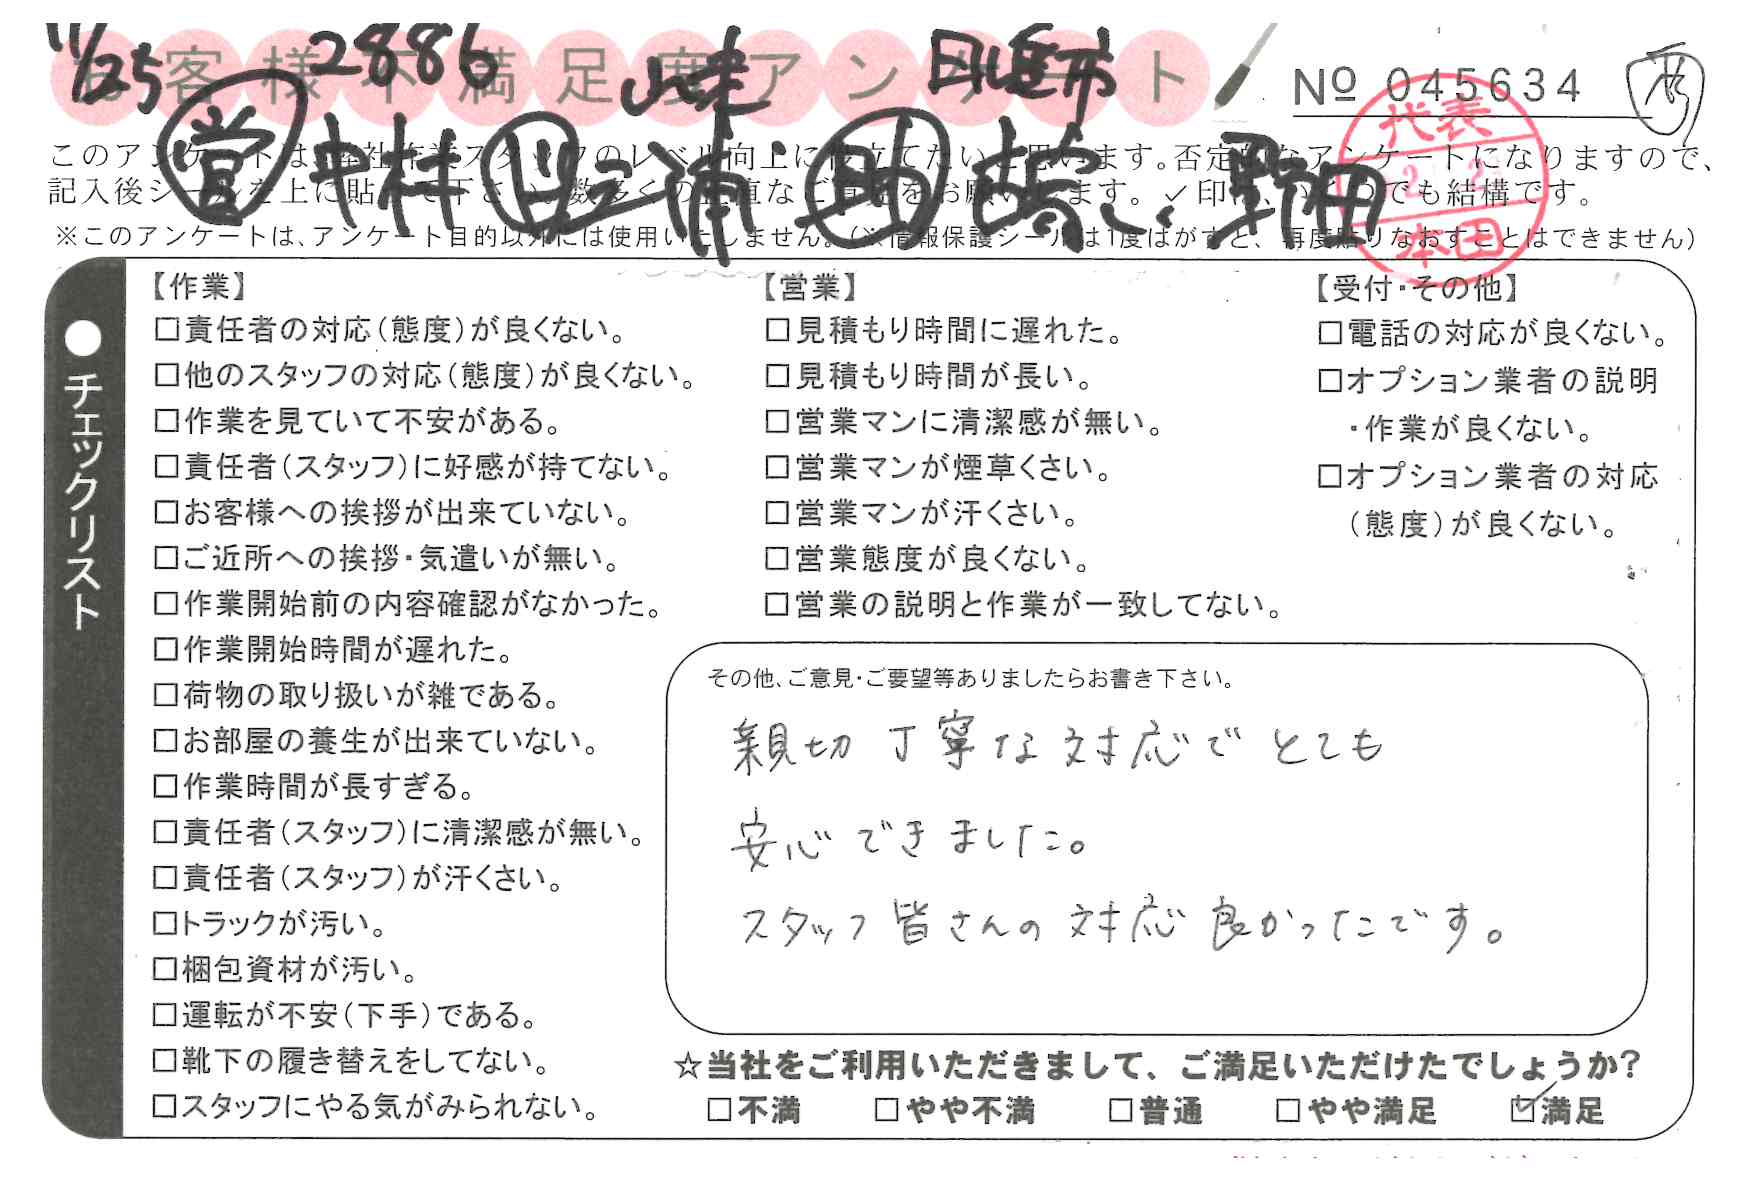 11/25 2886
お客様不満足度アンケート
No 045634
代表
本田
このアンケートは、弊社作業スタッフのレベル向上に役立てたいと思います。否定的なアンケートになりますので、
記入後シールを上に貼って下さい。数多くの正直なご意見をお願いします。✓印は、いくつでも結構です。
※このアンケートは、アンケート目的以外には使用いたしません。(※情報保護シールは1度はがすと、再度貼りなおすことはできません)
●チェックリスト
【作業】
□責任者の対応(態度)が良くない。
□他のスタッフの対応(態度)が良くない。
□作業を見ていて不安がある。
□責任者(スタッフ)に好感が持てない。
□お客様への挨拶が出来ていない。
□ご近所への挨拶・気遣いが無い。
□作業開始前の内容確認がなかった。
□作業開始時間が遅れた。
□荷物の取り扱いが雑である。
□お部屋の養生が出来ていない。
□作業時間が長すぎる。
□責任者(スタッフ)に清潔感が無い。
□責任者(スタッフ)が汗くさい。
□トラックが汚い。
□梱包資材が汚い。
□運転が不安(下手)である。
□靴下の履き替えをしてない。
□スタッフにやる気がみられない。
【営業】
□見積もり時間に遅れた。
□見積もり時間が長い。
□営業マンに清潔感が無い。
□営業マンが煙草くさい。
□営業マンが汗くさい。
□営業態度が良くない。
□営業の説明と作業が一致してない。
【受付・その他】
□電話の対応が良くない。
□オプション業者の説明
・作業が良くない。
□オプション業者の対応
(態度)が良くない。
その他、ご意見・ご要望等ありましたらお書き下さい。
親切丁寧な対応でとても
安心できました。
スタッフ皆さんの対応良かったです。
☆当社をご利用いただきまして、ご満足いただけたでしょうか?
□不満 □やや不満 □普通 □やや満足 ☑満足